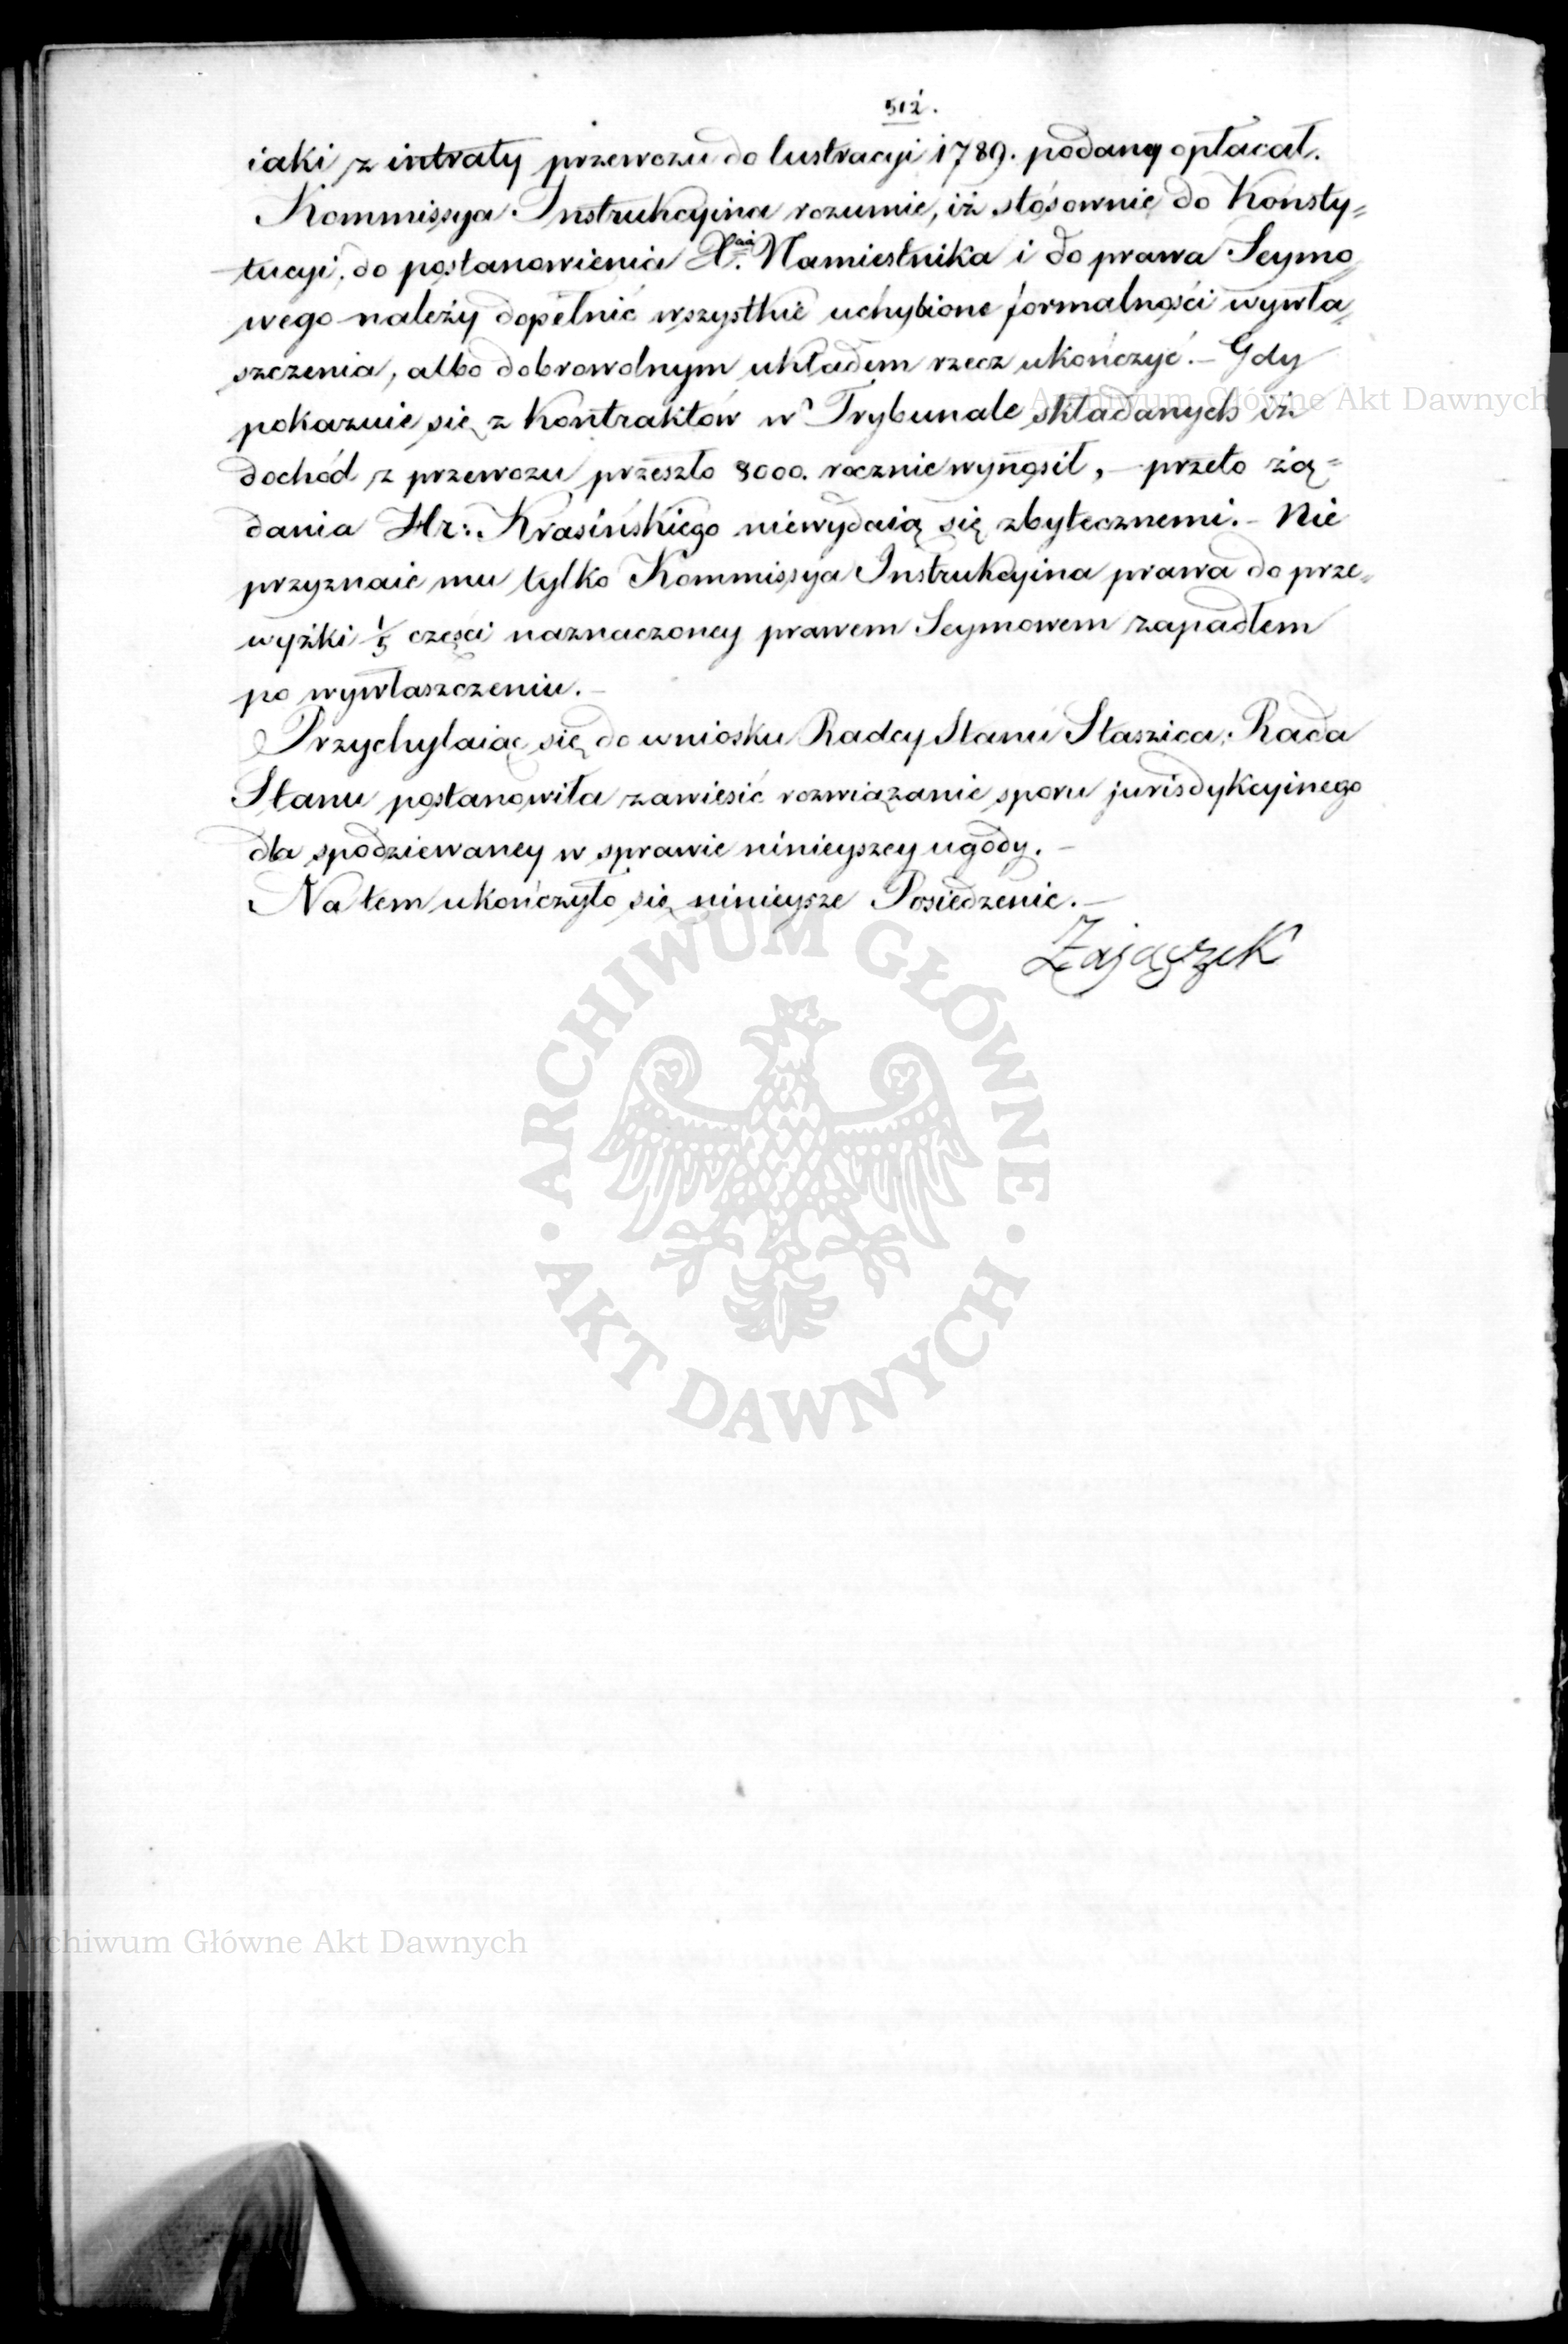 512.
iaki z intraty przewozu do lustracyi 1789. podany opłacał.
Kommissya Instrukcyina rozumie, iż stósownie do Konsty=
tucyi, do postanowienia Xcia Namiestnika i do prawa Seymo=
wego należy dopełnić wszystkie uchybione formalności wywła=
szczenia, albo dobrowolnym układem rzecz ukończyć. – Gdy
pokazuie się z Kontraktów w Trybunale składanych iż
dochód z przewozu przeszło 8000. rocznie wynosił, – przeto żą=
dania Hr: Krasińskiego niewydaią się zbytecznemi. – Nie
przyznaie mu tylko Kommissya Instrukcyina prawa do prze=
wyżki 1/5 części naznaczoney prawem Seymowem zapadłem
po wywłaszczeniu. –
Przychylaiąc się do wniosku Radcy Stanu Staszica, Rada
Stanu postanowiła zawiesić rozwiązanie sporu jurisdykcyinego
dla spodziewaney w sprawie ninieyszey ugody. –
Na tem ukończyło się ninieysze Posiedzenie. –
Zajączek
ARCHIWUM GŁÓWNE AKT DAWNYCH
Archiwum Główne Akt Dawnych
Archiwum Główne Akt Dawnych